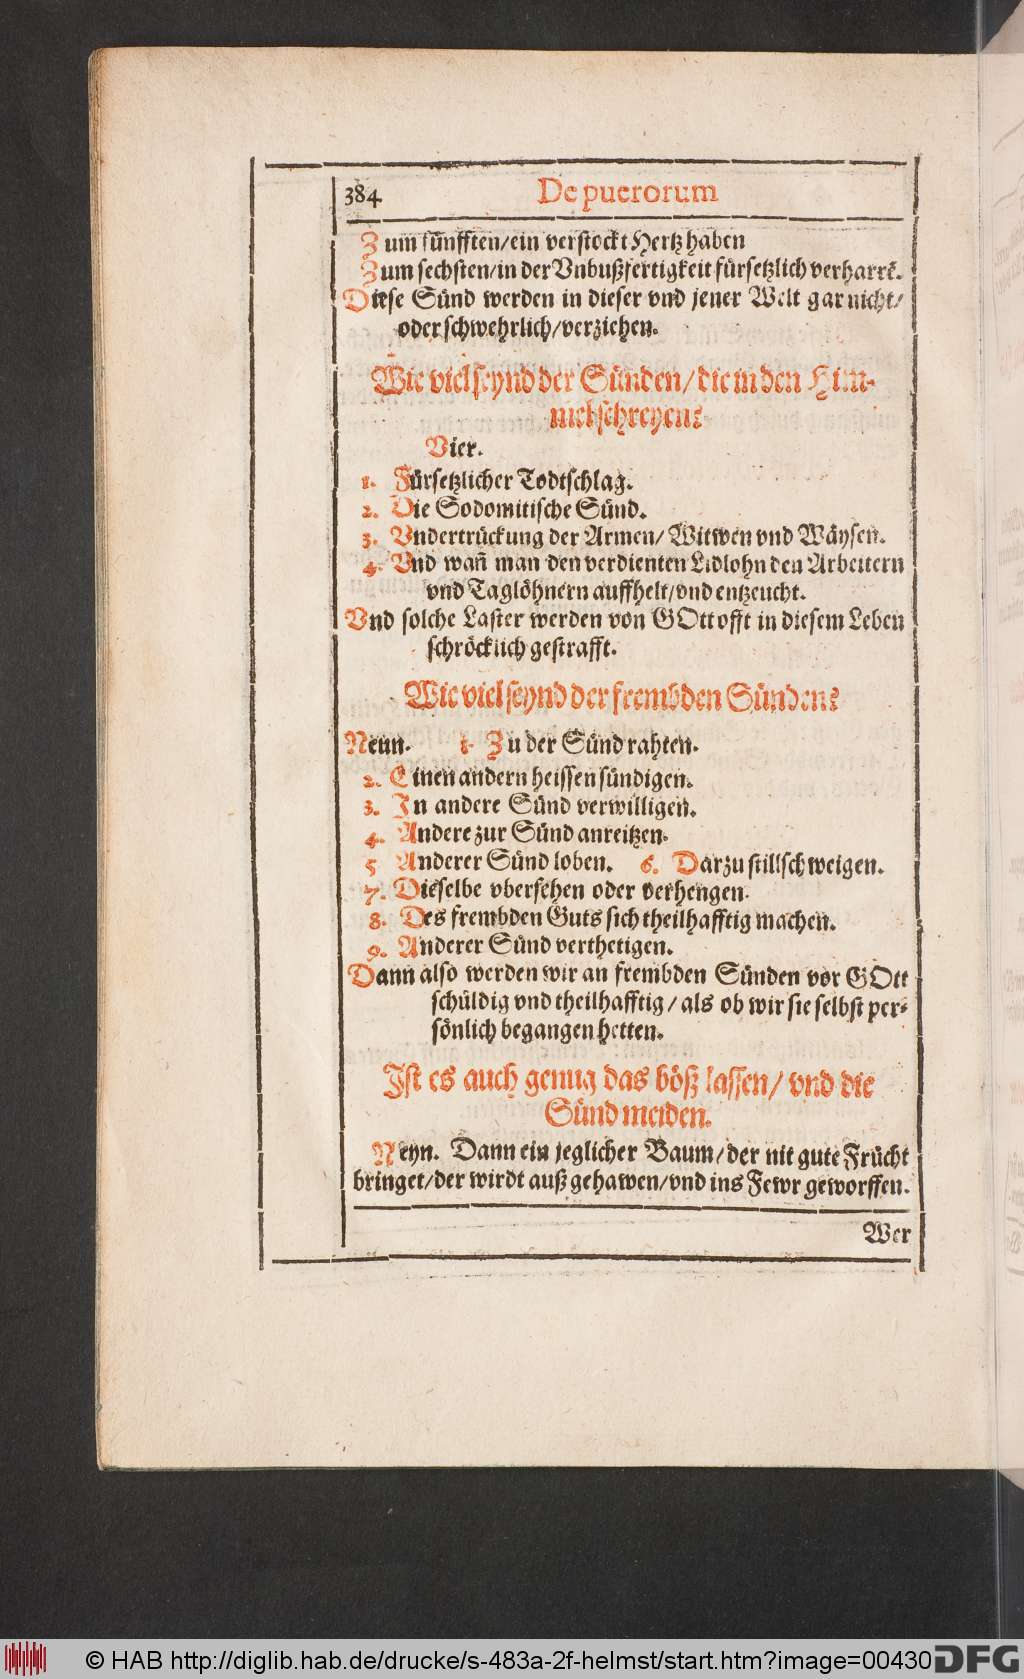 384 De puerorum
Zum fünfften/ein verstockt Hertz haben
Zum sechsten/in der Vnbußfertigkeit fürsetzlich verharrē.
Diese Sünd werden in dieser vnd jener Welt gar nicht/
oder schwehrlich/verziehen.
Wie viel seynd der Sünden/die in den Him-
mel schreyen?
Vier.
1. Fürsetzlicher Todtschlag.
2. Die Sodomitische Sünd.
3. Vndertrückung der Armen/ Witwen vnd Wäysen.
4. Vnd wañ man den verdienten Lidlohn den Arbeitern
vnd Taglöhnern auffhelt/vnd entzeucht.
Vnd solche Laster werden von GOtt offt in diesem Leben
schröcklich gestrafft.
Wie viel seynd der frembden Sünden?
Neun. 1. Zu der Sünd rahten.
2. Einen andern heissen sündigen.
3. In andere Sünd verwilligen.
4. Andere zur Sünd anreitzen.
5 Anderer Sünd loben. 6. Darzu stillschweigen.
7. Dieselbe vbersehen oder verhengen.
8. Des frembden Guts sich theilhafftig machen.
9. Anderer Sünd verthetigen.
Dann also werden wir an frembden Sünden vor GOtt
schüldig vnd theilhafftig/ als ob wir sie selbst per-
sönlich begangen hetten.
Ist es auch genug das böß lassen/ vnd die
Sünd meiden.
Neyn. Dann ein jeglicher Baum/der nit gute Frücht
bringet/der wirdt außgehawen/vnd ins Fewr geworffen.
Wer
© HAB http://diglib.hab.de/drucke/s-483a-2f-helmst/start.htm?image=00430 DFG